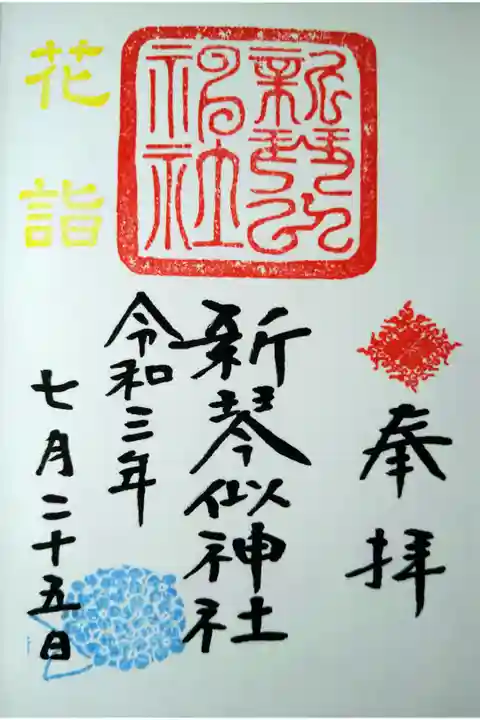 奉拝
新琴似神社
新琴似
神社
令和三年
七月二十五日
花詣